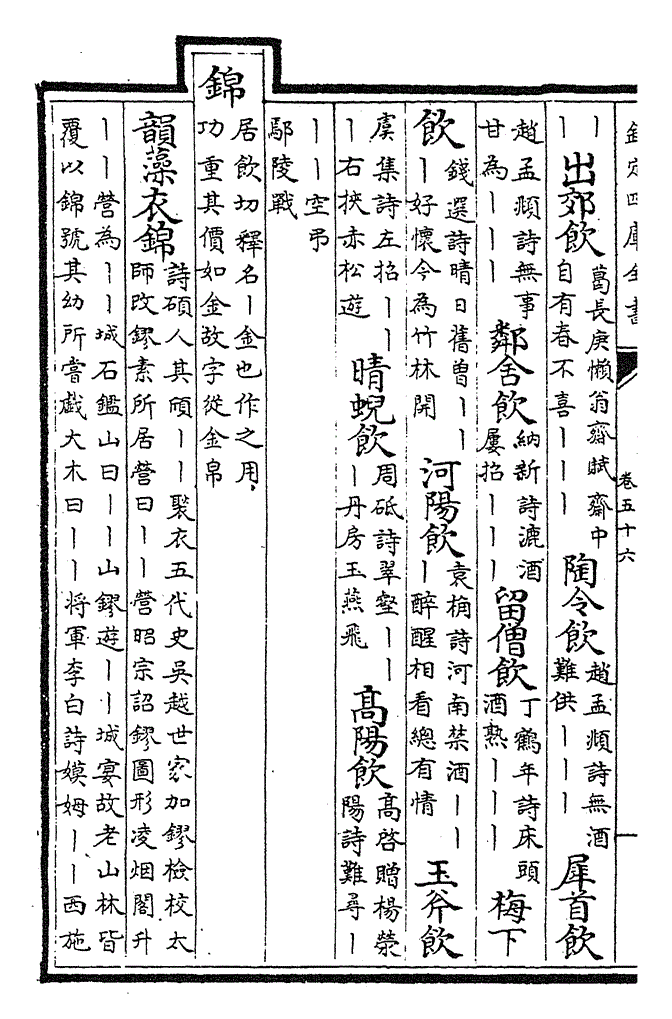 欽定四庫全書 卷五十六
丨
丨
出郊飲
葛長庚懶翁齋賦齋中
自有春不喜丨丨丨
陶令飲
趙孟頫詩無酒
難供丨丨丨
犀首飲
趙孟頫詩無事
甘為丨丨丨
鄰舍飲
納新詩漉酒
屢招丨丨丨
留僧飲
丁鶴年詩床頭
酒熟丨丨丨
梅下
飲
錢選詩晴日舊曽丨丨
丨好懷今為竹林開
河陽飲
袁桷詩河南禁酒丨丨
丨醉醒相看總有情
玉斧飲
虞集詩左招丨丨
丨右挾赤松遊
晴蜺飲
周砥詩翠壑丨丨
丨丹房玉燕飛
高陽飲
高啓贈楊滎
陽詩難尋丨
丨丨空弔
鄢陵戰
錦
居飲切釋名丨金也作之用
功重其價如金故字從金帛
韻藻衣錦
詩碩人其頎丨丨褧衣五代史吳越世家加鏐檢校太
師改鏐素所居營曰丨丨營昭宗詔鏐圖形凌烟閣升
丨丨營為丨丨城石鑑山曰丨丨山鏐遊丨丨城宴故老山林皆
覆以錦號其幼所嘗戲大木曰丨丨將軍李白詩嫫姆丨丨西施